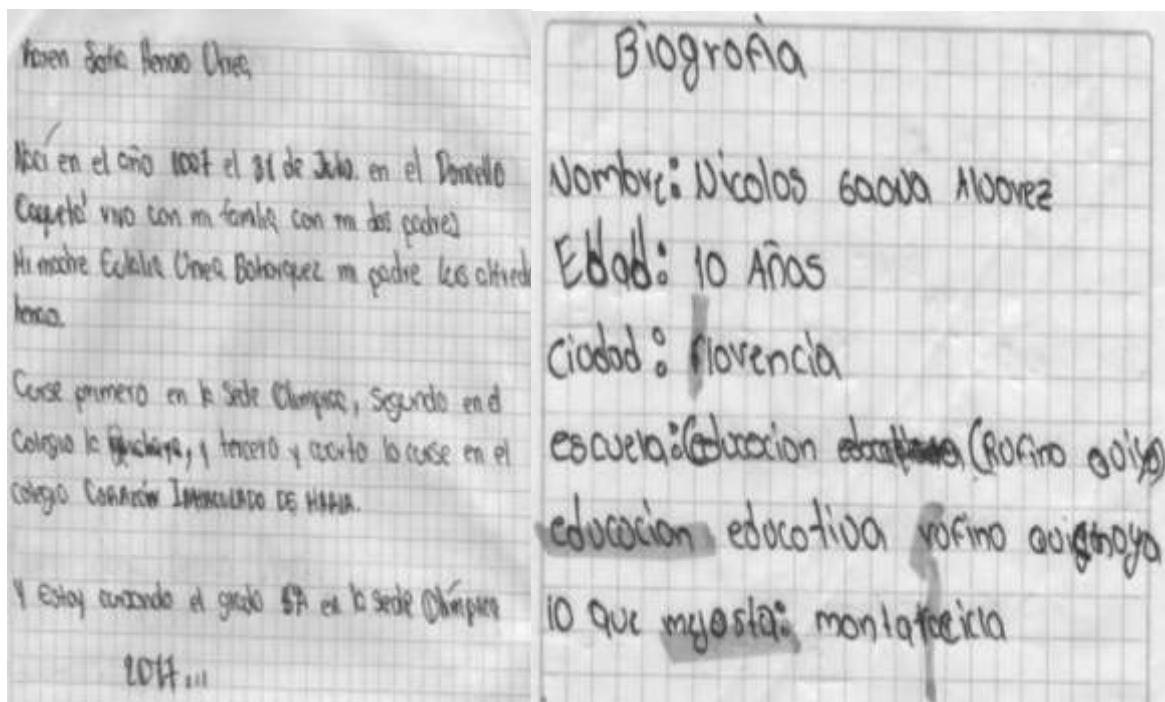 Karen Sofia Henao Urrea
Nací en el año 2007 el 31 de Julio. en el Doncello
Caquetá vivo con mi familia con mi dos padres
Mi madre Eulalia Urrea Bohorquez mi padre luis alfredo
henao.
Curse primero en la Sede Olimpica, Segundo en el
Colegio la, y tercero y cuarto lo curse en el
colegio CORAZÓN INMACULADO DE MARIA.
Y Estoy cursando el grado 5A en la sede Olímpica
2017...
Biografia
Nombre: Nicolas Alvarez
Edad: 10 Años
Ciudad: florencia
escuela: educacion (Rufino quiya)
educacion educativa rufino
lo que megosta: monta